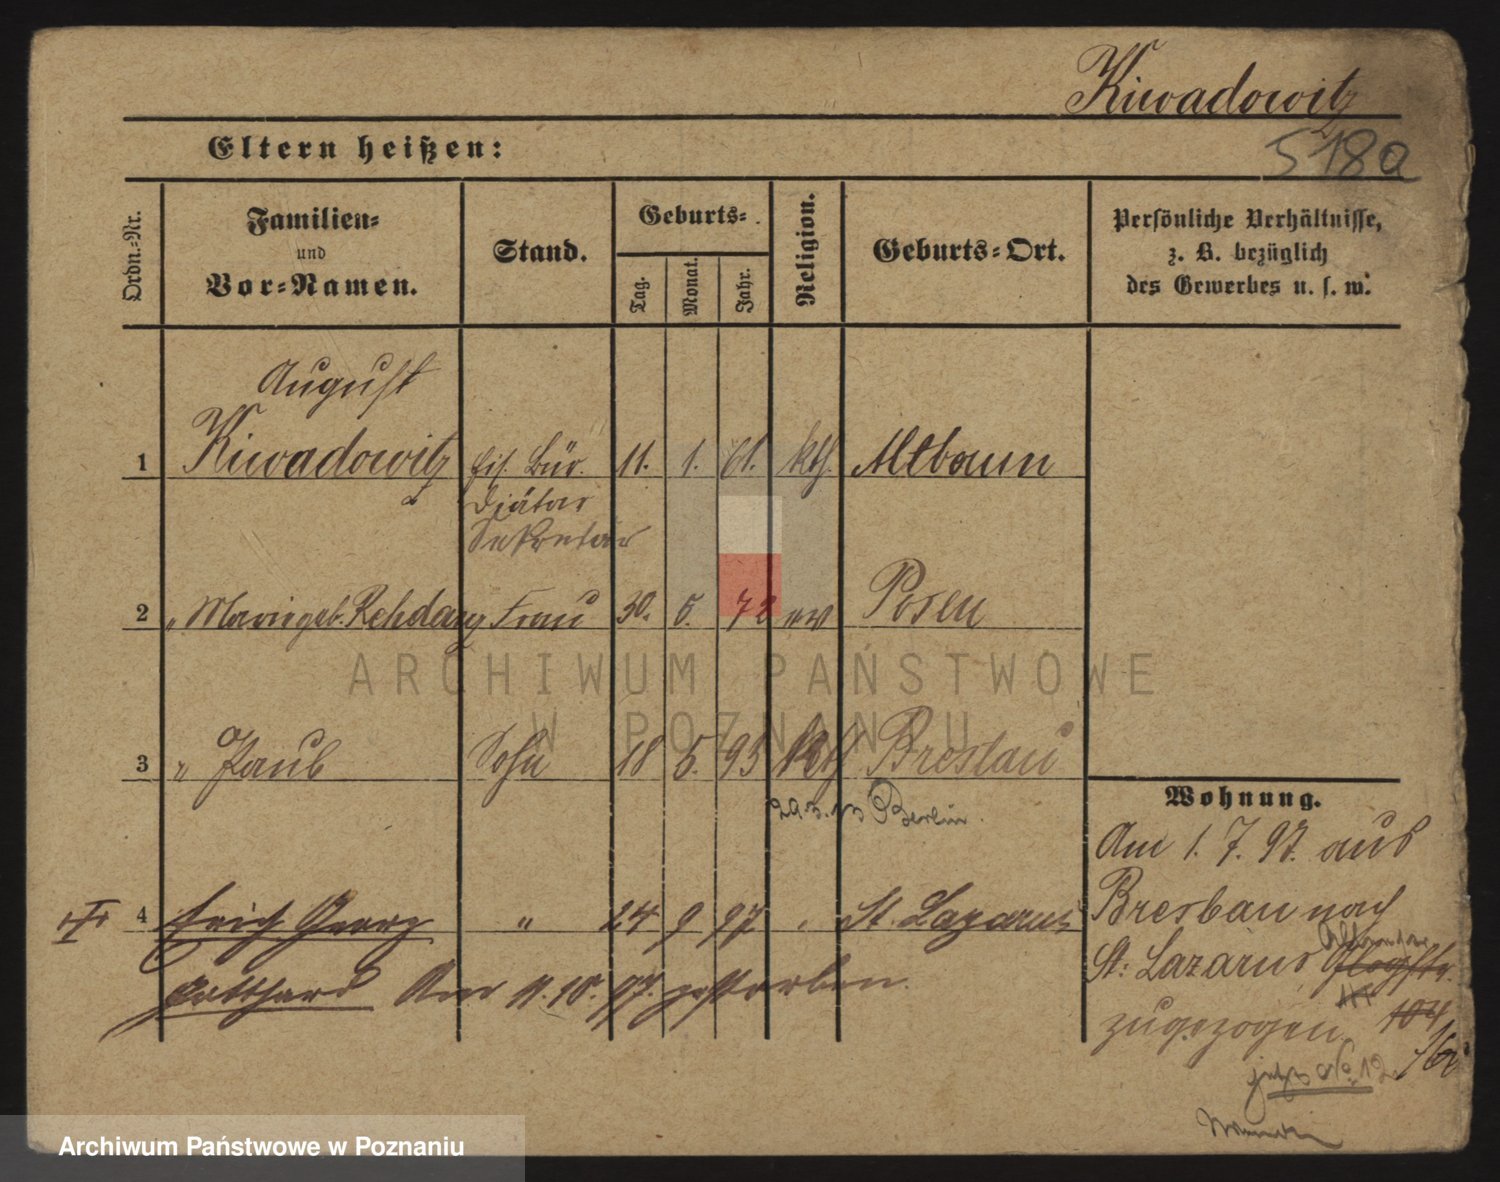 Kiwadowitz
518a
Eltern heißen:
Ordn.-Nr.
Familien-
und
Vor-Namen.
Stand.
Geburts-
Tag.
Monat.
Jahr.
Religion.
Geburts-Ort.
Persönliche Verhältnisse,
z. B. bezüglich
des Gewerbes u. s. w.
August
1 Kiwadowitz Eis. Bür. 11. 1. 61. kth. Altbaum
Diätar
Sekretär
2 " Marie geb. Rehdanz Frau 30. 5. 72 ev Posen
3 " Paul Sohn 18 5. 93 kth Breslau
Berlin.
4 Erich Georg " 24 9 97 St. Lazarus
Gotthard Am 11.10.97. gestorben.
Wohnung.
Am 1.7.97. aus
Breslau nach
St. Lazarus
zugezogen. 104
jetzt No 12
ARCHIWUM PAŃSTWOWE
W POZNANIU
Archiwum Państwowe w Poznaniu